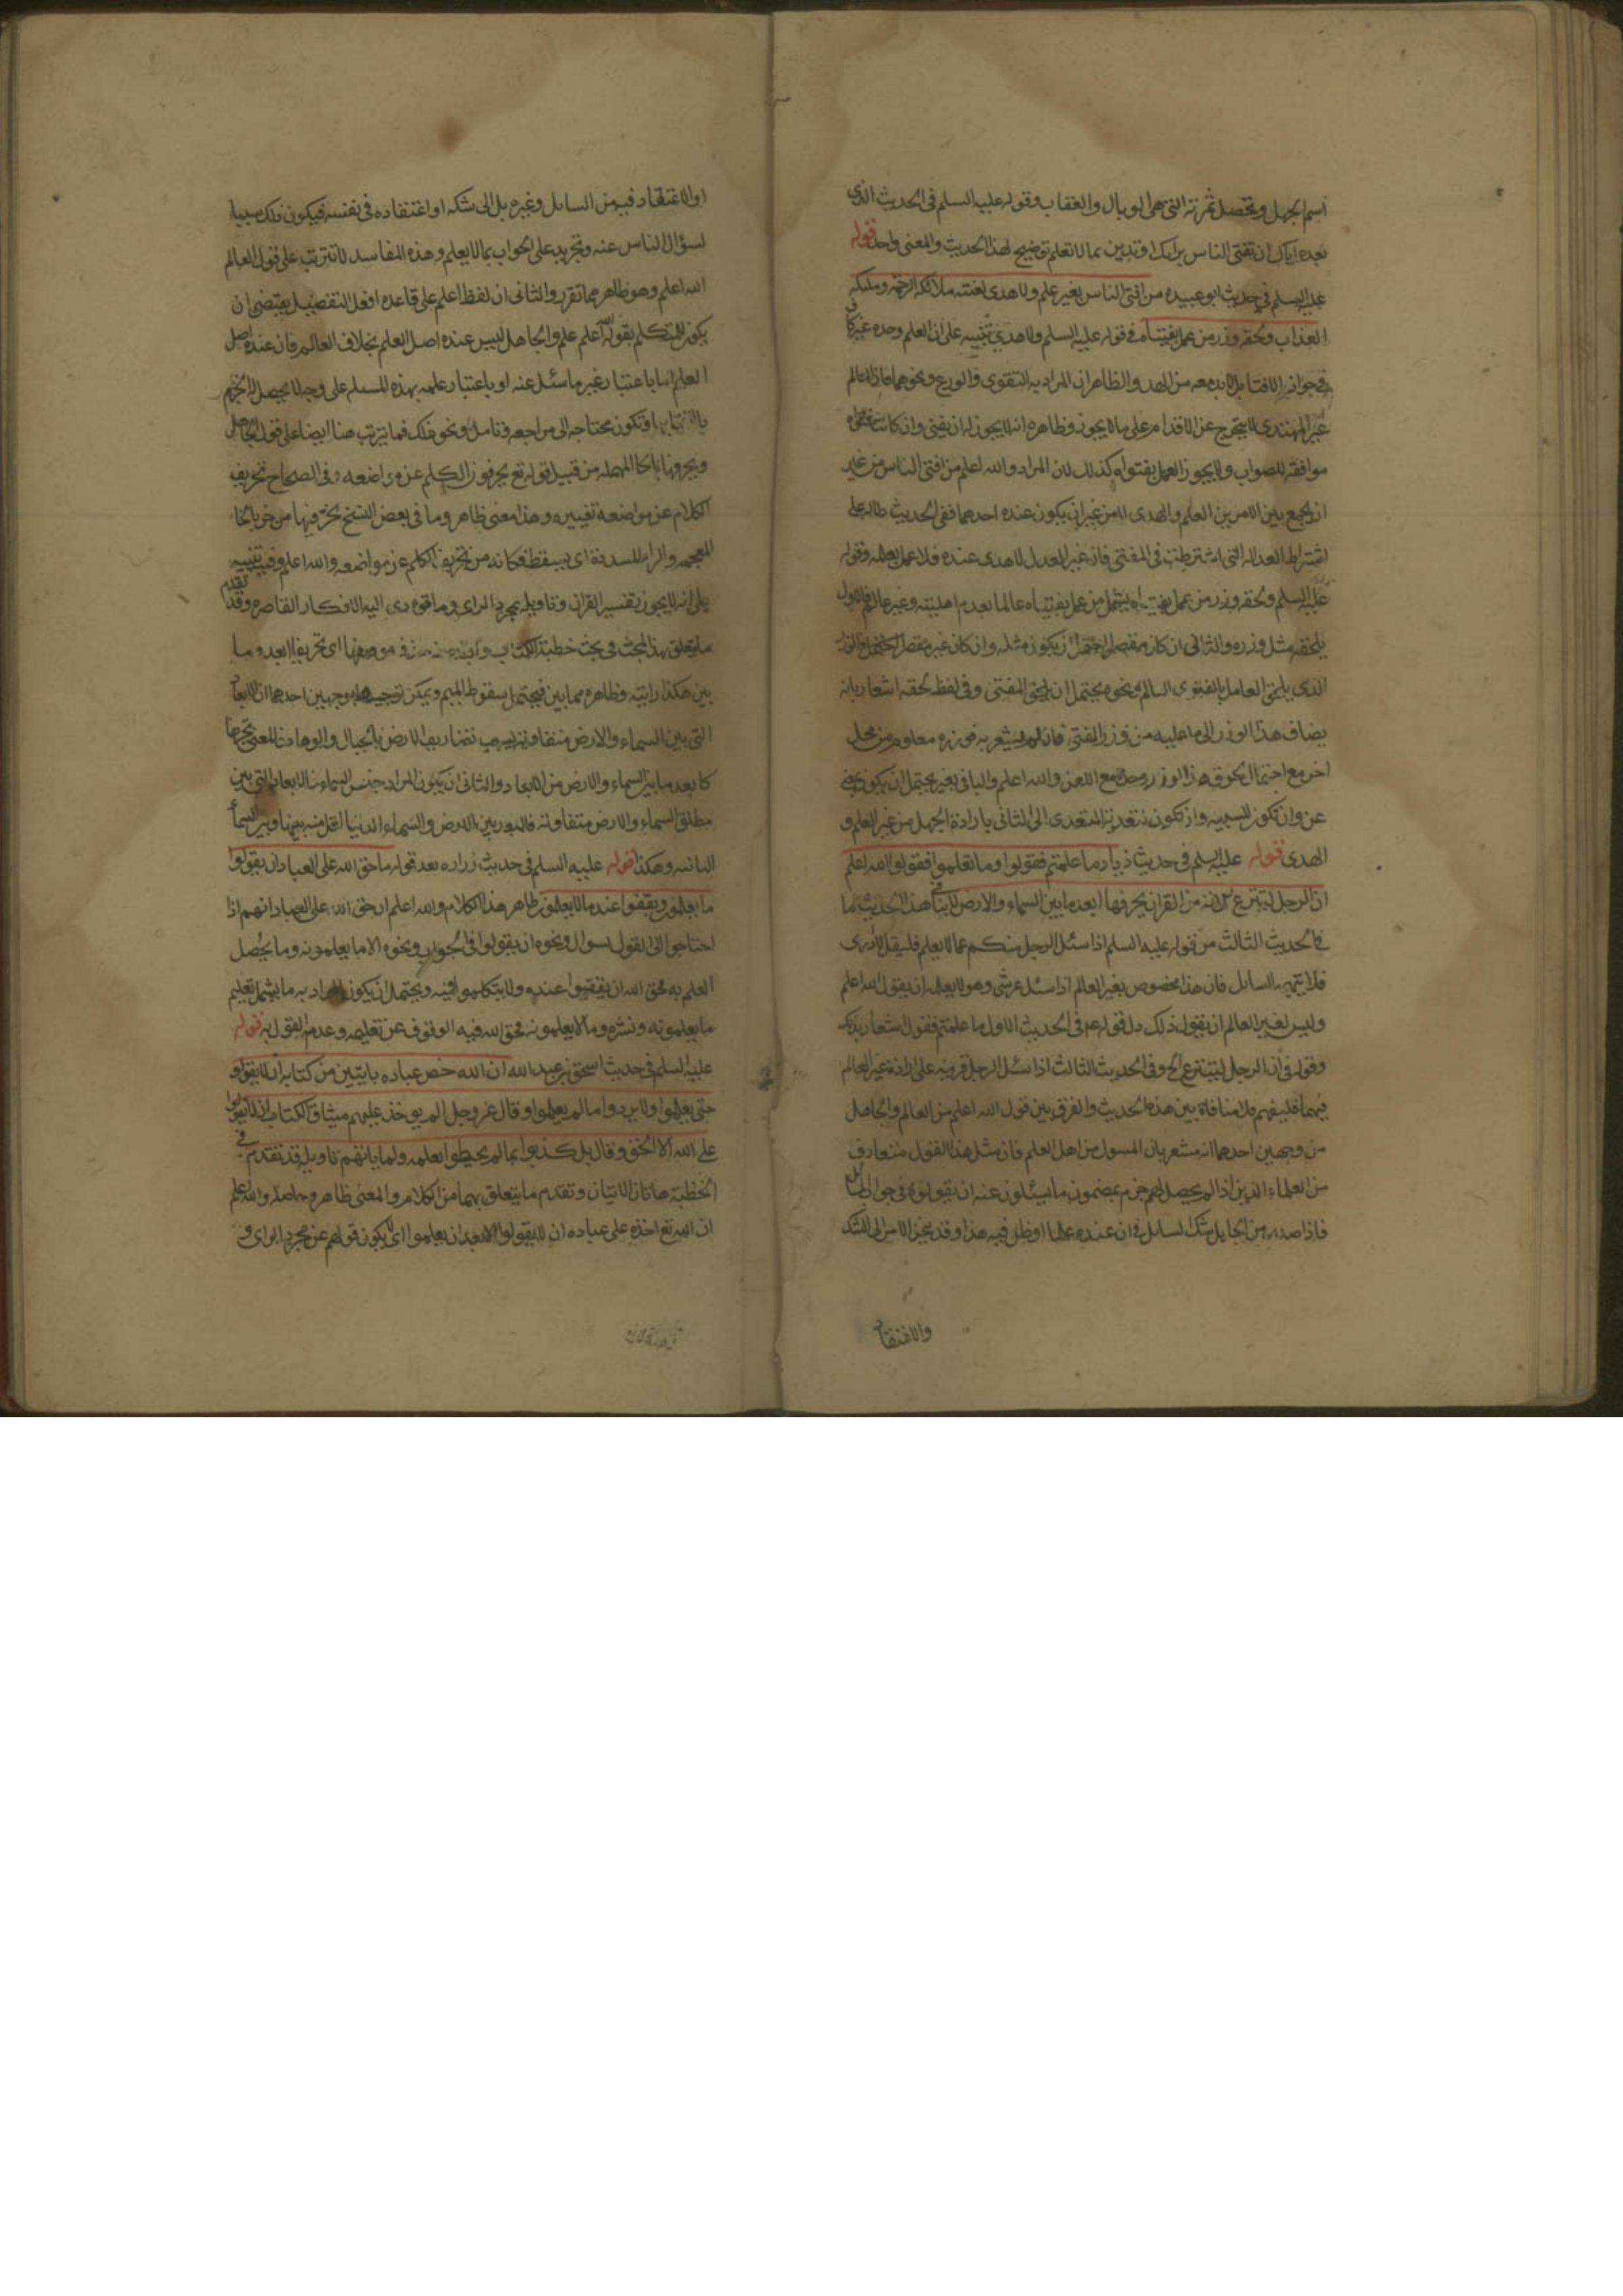 اسم الجهل وتحصل ثمرته التى هى الوبال والعقاب وقوله عليه السلم فى الحديث الذى
بعده اياك ان تفتى الناس برايك او تدين بما لا تعلم توضيح لهذا الحديث والمعنى واحد قوله
عليه السلم فى حديث ابو عبيده من افتى الناس بغير علم ولا هدى لعنته ملائكه الرحمة وملئكه
العذاب ولحقه وزر من عمل بفتياه فى قوله عليه السلم ولا هدى تنبيه على ان العلم وحده غير كاف
فى جواز الافتا بل لا بد معه من الهدى والظاهر ان المراد به التقوى والورع ونحوهما فاذا العالم
غير المهتدى لا يتحرج عن الاقدام على ما لا يجوز وظاهره انه لا يجوز له ان يفتى وان كانت فتواه
موافقه للصواب ولا يجوز العمل بفتواه كذلك لان المراد والله اعلم من افتى الناس من غير
ان يجمع بين الامرين العلم والهدى لا من غير ان يكون عنده احدهما ففى الحديث دلاله على
اشتراط العداله التى اشترطت فى المفتى فان غير العدل لا هدى عنده فلا عمل بعلمه وقوله
عليه السلم ولحقه وزر من عمل بفتياه يشمل من عمل بفتياه عالما بعدم اهليته وغير عالم فالاول
يلحقه مثل وزره والثانى ان كان مقصرا احتمل ان يكون مثله وان كان غير مقصر احتمل فالوزر
الذى يلحق العامل بالفتوى السالم ونحوه يحتمل ان يلحق المفتى وفى لفظ لحقه اشعار بانه
يضاف هذا الوزر الى ما عليه من وزر الفتى فان لم يشعر به فوزره معلوم من محل
اخر مع احتمال لحوق هذا الوزر وحده مع اللعن والله اعلم والبا فى بغير يحتمل ان يكون بمعنى
عن وان تكون للسببيه وان تكون لتعدية المتعدى الى الثانى بارادة الجهل من غير العلم و
الهدى قوله عليه السلم فى حديث زياد ما علمتم فقولوا وما لم تعلموا فقولوا الله اعلم
ان الرجل لينتزع الاية من القران يخر فيها ابعد ما بين السماء والارض لا ينافى هذا الحديث ما
فى الحديث الثالث من قوله عليه السلم اذا سئل الرجل منكم عما لا يعلم فليقل لا ادرى
فلا يتهمه السائل فان هذا مخصوص بغير العالم اذا سئل عن شى وهو لا يعلمه ان يقول الله اعلم
وليس لغير العالم ان يقول ذلك دل قوله ع فى الحديث الاول ما علمتم فقولوا اشعار بذلك
وقوله فى ان الرجل لينتزع الخ وفى الحديث الثالث اذا سئل الرجل قرينه على ارادة غير العالم
فيهما فليفهم فلا منافاة بين هذه الحديث والفرق بين قول الله اعلم من العالم والجاهل
من وجهين احدهما انه مشعر بان المسول من اهل العلم فان مثل هذا القول متعارف
من العلماء الذين اذا لم يحصل لهم جزم بمضمون ما يسئلون عنه ان يقولوه فى جواب السائل
فاذا صدر من الجاهل شك السائل فى ان عنده علما اوظن فيه هذا وقد ينجز الامر الى الشك
والاعتقاد
او الاعتقاد فيه من السائل وغيره بل الى شكه او اعتقاده فى نفسه فيكون ذلك سببا
لسؤال الناس عنه وتجريه على الجواب بما لا يعلم وهذه المفاسد لا تترتب على قول العالم
الله اعلم وهو ظاهر مما تقرر والثانى ان لفظ اعلم على قاعده افعل التفضيل يقتضى ان
يكون للمتكلم بقوله الله اعلم علم والجاهل ليس عنده اصل العلم بخلاف العالم فان عنده اصل
العلم اما باعتبار غير ما سئل عنه او باعتبار علمه بهذه المسئله على وجه لا يحصل له الجزم
او تكون محتاجه الى مراجعه وتامل ونحو ذلك فما يترتب هنا ايضا على قول الجاهل
ويحرفها بالحا المهمله من قبيل قوله تع يحرفون الكلم عن مواضعه وفى الصحاح تحريف
الكلام عن مواضعه تغييره وهذا معنى ظاهر وما فى بعض النسخ يخر فيها من خر بالخا
المعجمه والرا المشددة اى يسقط فكانه من تحريف الكلم عن مواضعه والله اعلم وفيه تنبيه
على انه لا يجوز تفسير القران وتاويله بمجرد الراى وما تودى اليه الافكار القاصره وقد تقدم
ما يتعلق بهذا المبحث فى بحث خطبة الكتاب اى تحريفا ابعد وما
بين هكذا رايته وظاهره مما بين فيحتمل سقوط الميم ويمكن توجيهه بوجهين احدهما ان الابعاد
التى بين السماء والارض متفاوته بسبب تضاريس الارض بالجبال والوهاد فالمعنى يحرفها
كا بعد ما بين السماء والارض من الابعاد والثانى ان يكون المراد جنس السماء فالابعاد التى بين
مطلق السماء والارض متفاوته فالبعد بين الارض والسماء الدنيا اقل منه بينها وبين السماء
الثانيه وهكذا قوله عليه السلم فى حديث زراره بعد قوله ما حق الله على العباد ان يقولوا
ما يعلمون ويقفوا عند ما لا يعلمون ظاهر هذا الكلام والله اعلم ان حق الله على العباد انهم اذا
احتاجوا الى القول لسوال ونحوه ان يقولوا فى الجواب ونحوه الا ما يعلمونه وما يحصل
العلم به فحق الله ان يقفوا عنده ولا يتكلموا فيه ويحتمل ان يكون المراد به ما يشمل تعليم
ما يعلمونه ونشره وما لا يعلمونه فحق الله فيه الوقوف عن تعليمه وعدم القول به قوله
عليه السلم فى حديث اسحق بن عبد الله ان الله خص عباده بايتين من كتابه ان لا يقولوا
حتى يعلموا ولا يردوا ما لم يعلموا وقال عز وجل الم يوخذ عليهم ميثاق الكتاب ان لا يقولوا
على الله الا الحق وقال بل كذبوا بما لم يحيطوا بعلمه ولما ياتهم تاويله قد تقدم فى
الخطبة هاتان الايتان وتقدم ما يتعلق بهما من الكلام والمعنى ظاهر وحاصله والله اعلم
ان الله تع اخذ على عباده ان لا يقولوا الا بعد ان يعلموا اى لا يكون قولهم عن مجرد الراى و